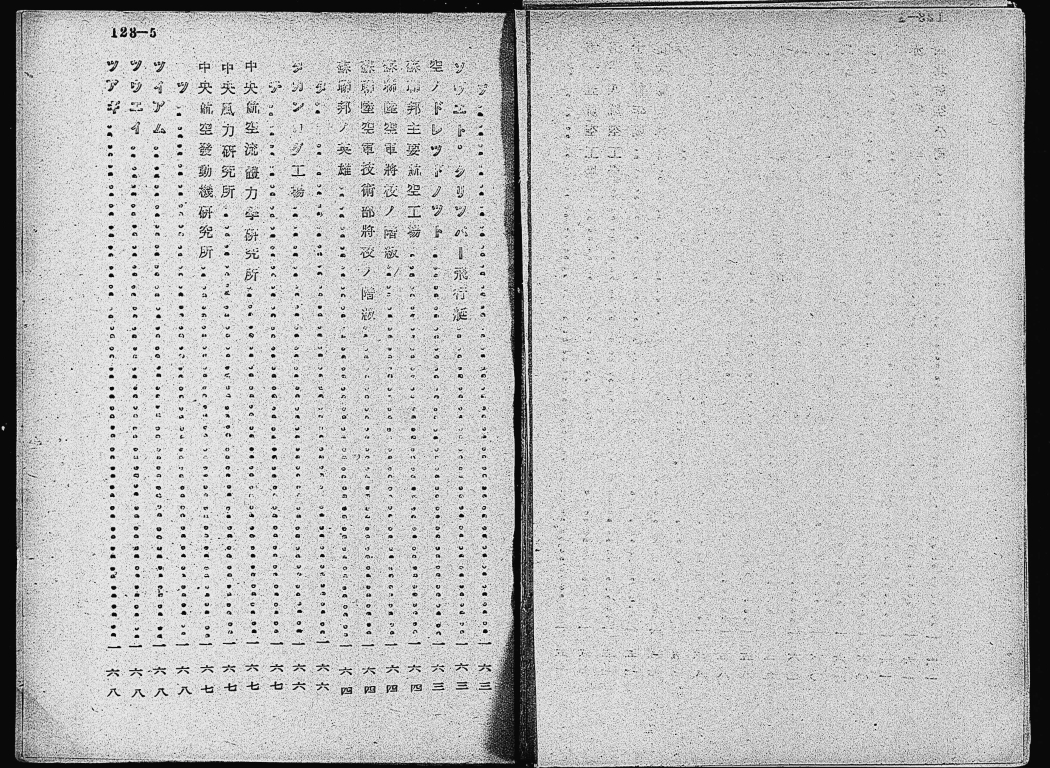 128-5
ソ・・・一六三
ソウエト・クリツパー飛行艇・・・一六三
空ノドレツドノツト・・・一六三
蘇聯邦主要航空工場・・・一六四
蘇聯陸空軍將校ノ階級・・・一六四
蘇聯陸空軍技術部將校ノ階級・・・一六四
蘇聯邦ノ英雄・・・一六四
タ・・・一六六
タガンログ工場・・・一六六
チ・・・一六七
中央航空流體力學研究所・・・一六七
中央風力研究所・・・一六七
中央航空發動機研究所・・・一六七
ツ・・・一六八
ツイアム・・・一六八
ツウエイ・・・一六八
ツアギ・・・一六八